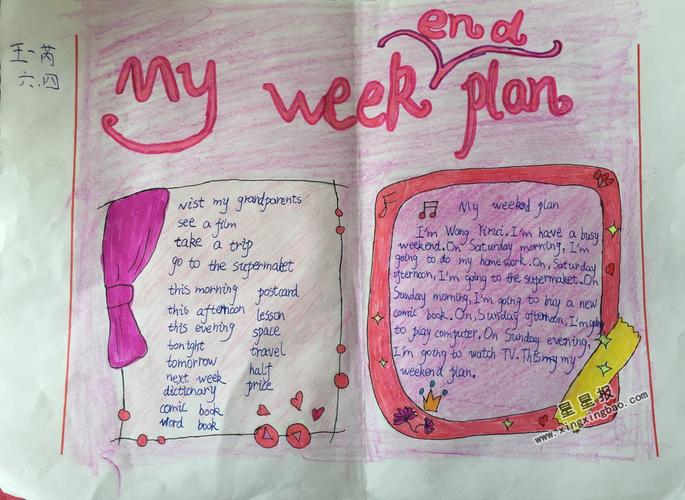 王一芮
六.四
My weekend plan
vist my grandparents
see a film
take a trip
go to the supermaket
this morning postcard
this afternoon lesson
this evening space
tonight travel
tomorrow half
next week prize
dictionary
comic book
word book
My weekend plan
I'm Wang Yirui. I'm have a busy
weekend. On Saturday morning, I'm
going to do my homework. On, Saturday
afternoon, I'm going to the supermaket. On
Sunday morning, I'm going to buy a new
comic book. On, Sunday afternoon, I'm going
to play computer. On Sunday evening,
I'm going to watch TV. This my my
weekend plan.
星星报
www.xingxingbao.com